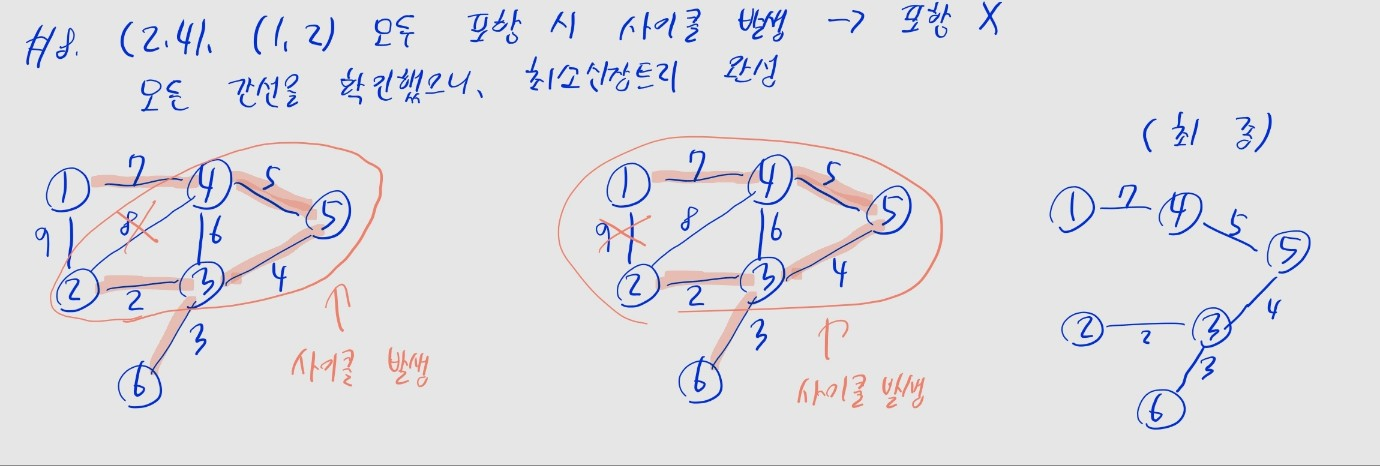 #8. (2,4), (1,2) 모두 포함 시 사이클 발생 → 포함 X
모든 간선을 확인했으니, 최소신장트리 완성
(최 종)
1 7 4 5 5
9 8 6
2 2 3 4
3
6
사이클 발생
1 7 4 5 5
9 8 6
2 2 3 4
3
6
사이클 발생
1 7 4 5 5
2 2 3 4
3
6